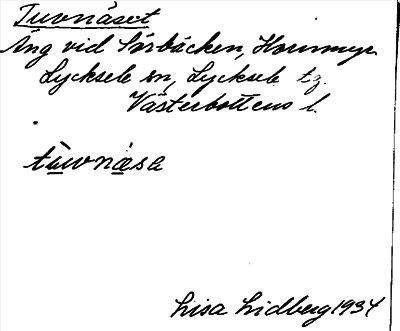 Tuvnäset
Äng vid Sörbäcken, Hornmyr
Lycksele sn, Lycksele tg.
Västerbottens l.
tùwnæsa
Lisa Lidberg 1934